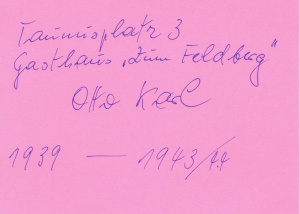 Taunusplatz 3
Gasthaus „zum Feldberg"
Otto Karl
1939 — 1943/44